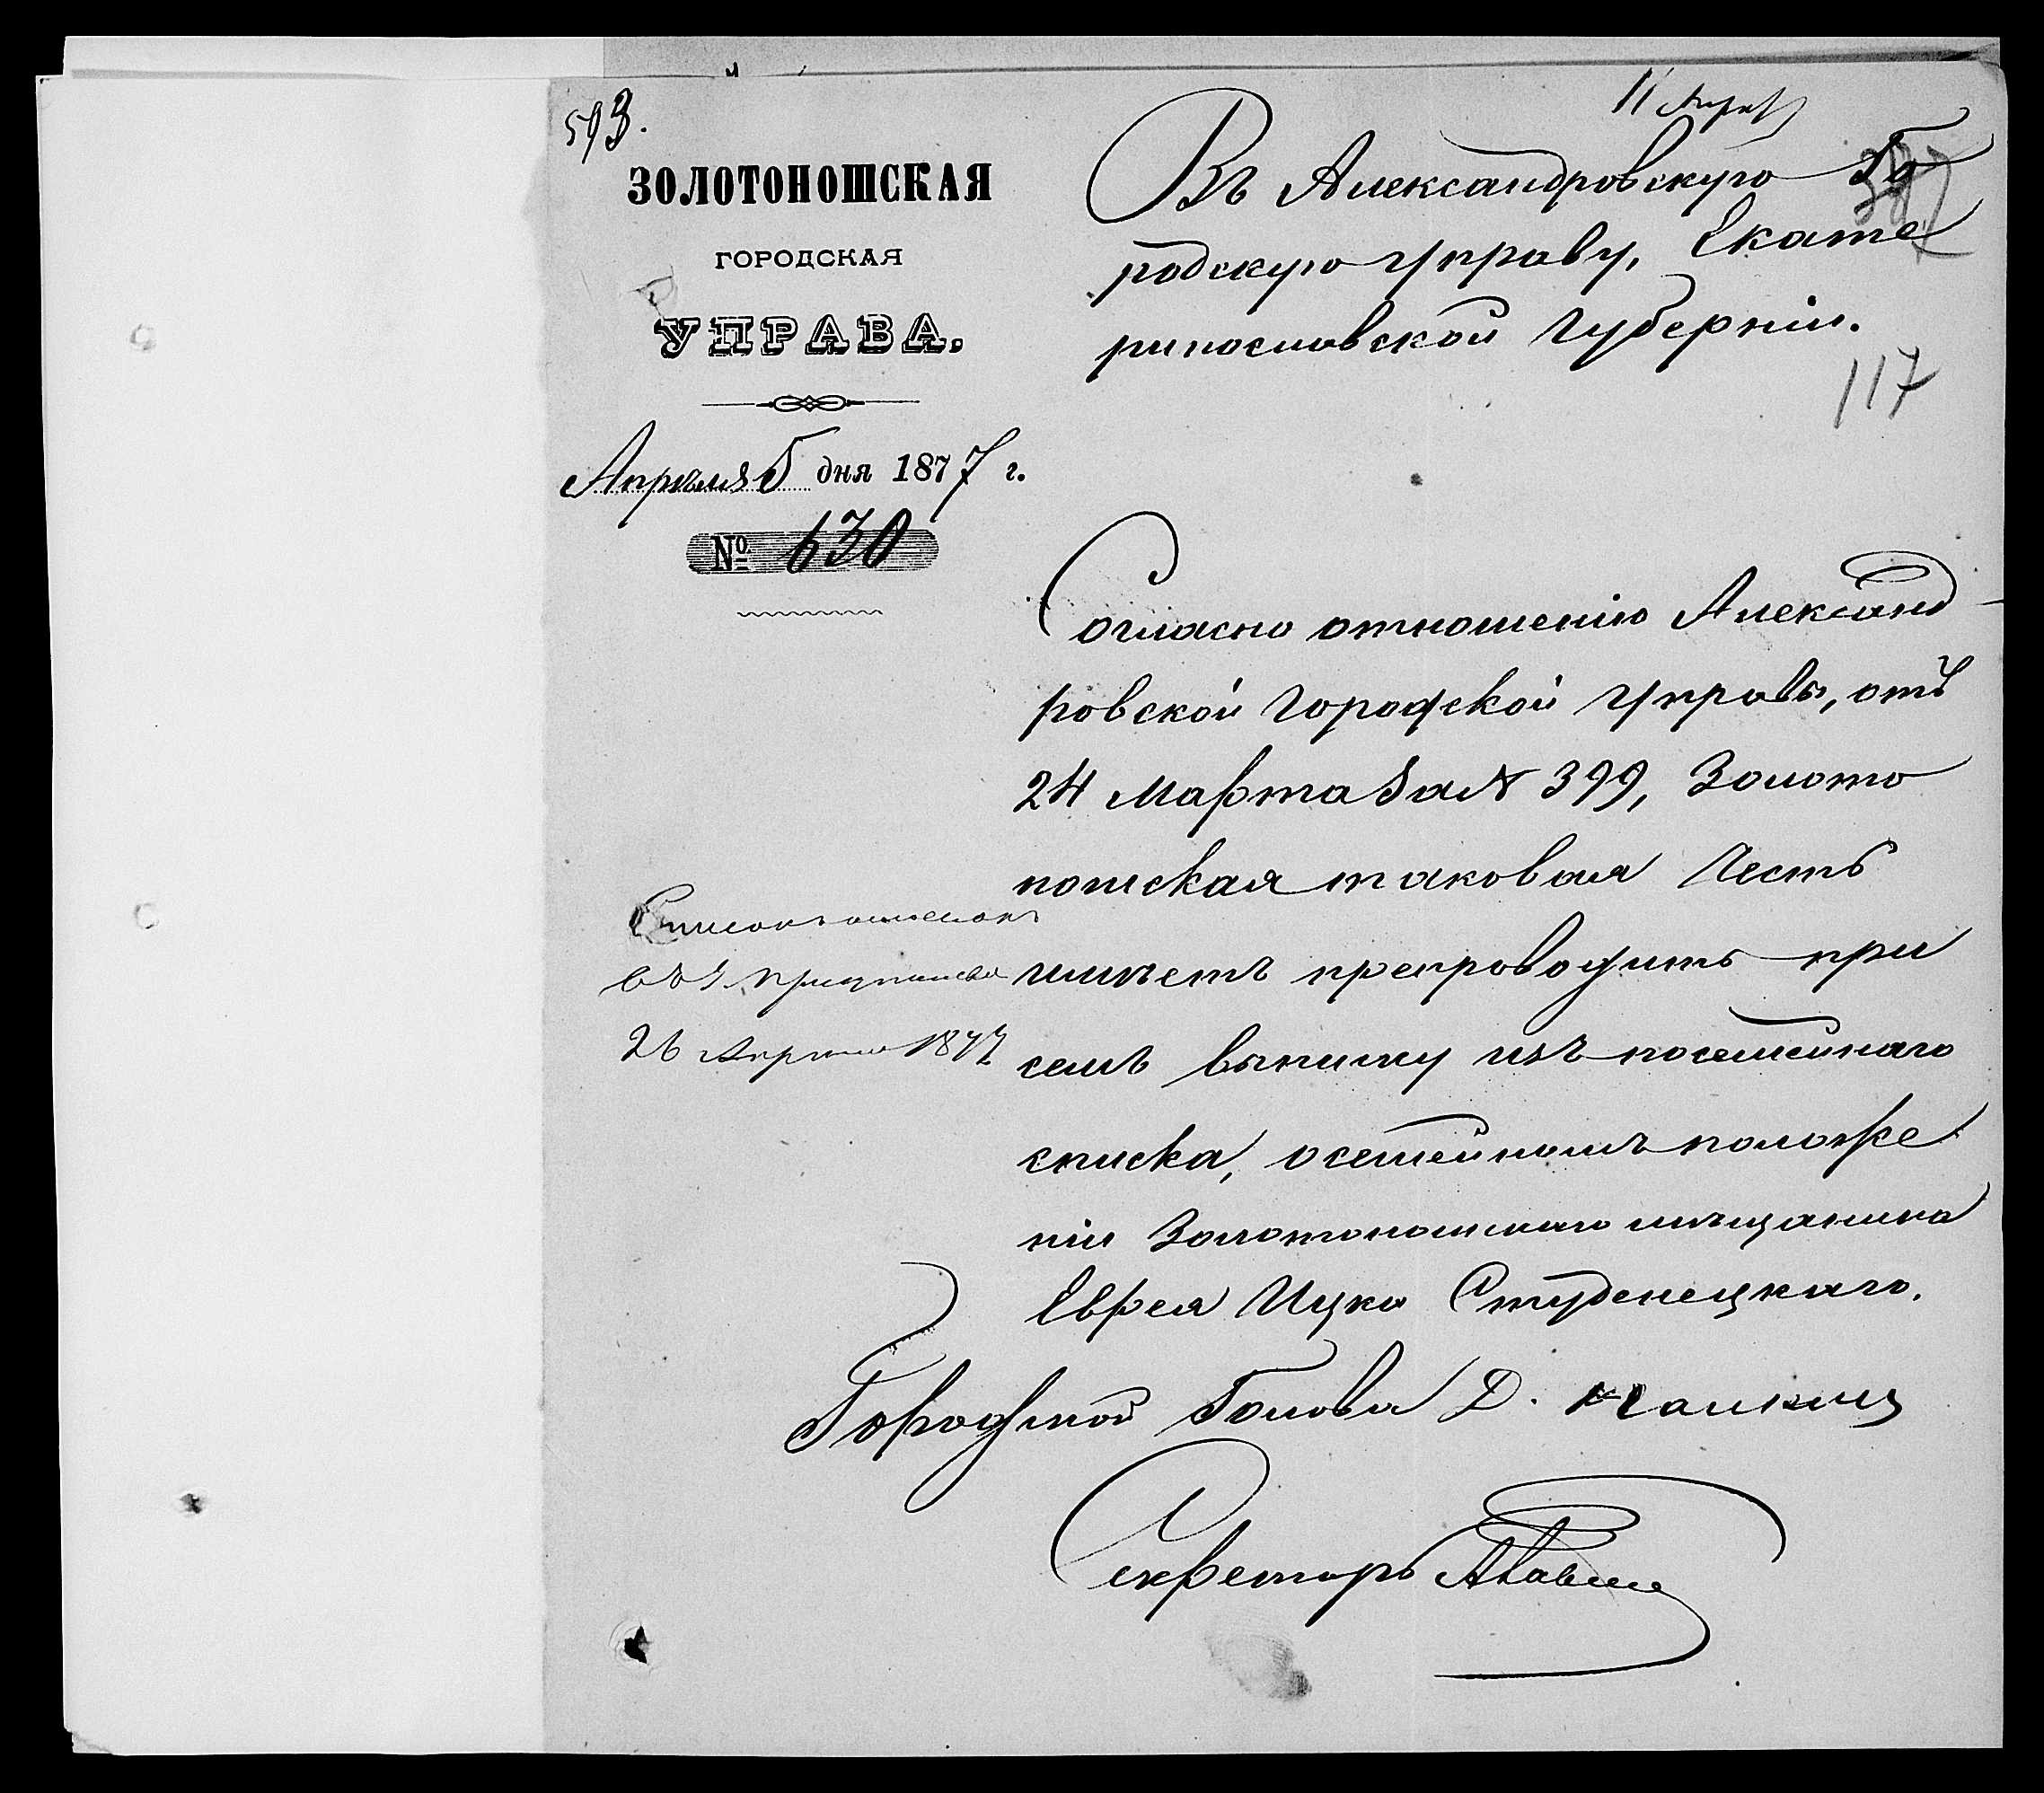 593.
11 Апр
ЗОЛОТОНОШСКАЯ
ГОРОДСКАЯ
УПРАВА.
Апрѣля 5 дня 1877 г.
№ 630
Въ Александровскую Го
родскую управу, Екате
ринославской Губерніи.
117
Согласно отношенію Александ-
ровской Городской Управы, отъ
24 Марта за № 399, Золото
ношская таковая честь
имѣетъ препроводить при
семъ выписку изъ посемейнаго
списка, о семейномъ положе
ніи Золотоношскаго мѣщанина
Еврея Ицко Студенецкаго.
Списокъ
26 Апрѣля 1877
Городской Голова Д.
Секретарь